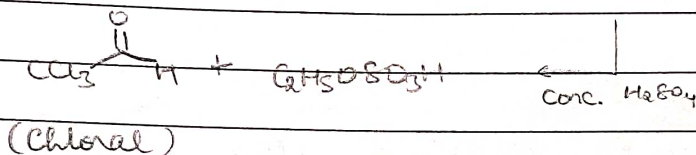 O
CCl3 H + C2H5OSO3H ← Conc. H2SO4
(Chloral)